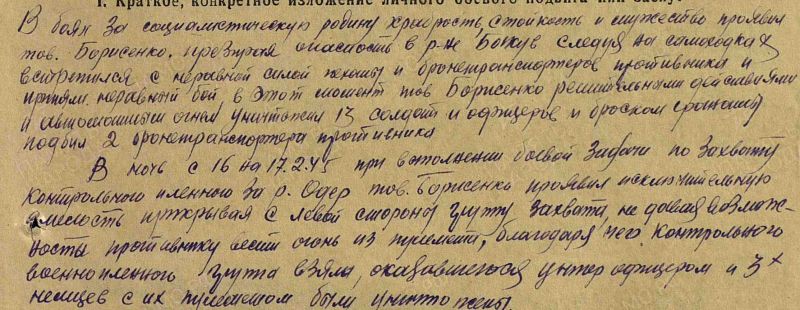 1. Краткое, конкретное изложение личного боевого подвига или заслуг
В боях за социалистическую родину храбрость, стойкость и мужество проявил
тов. Борисенко, презирая опасность в р-не Божув следуя на самоходках
встретился с неравной силой пехоты и бронетранспортеров противника и
приняли неравный бой, в этот момент тов Борисенко решительными действиями
и автоматным огнем уничтожил 13 солдат и офицеров и броском гранаты
подбил 2 бронетранспортера противника
В ночь с 16 на 17.2.45 при выполнении боевой задачи по захвату
контрольного пленного за р. Одер тов. Борисенко проявил исключительную
смелость прикрывая с левой стороны группу захвата, не давая возмож-
ность противнику вести огонь из пулемета, благодаря чего контрольного
военнопленного группа взяла, оказавшегося унтер офицером и 3х
немцев с их пулеметом были уничтожены.